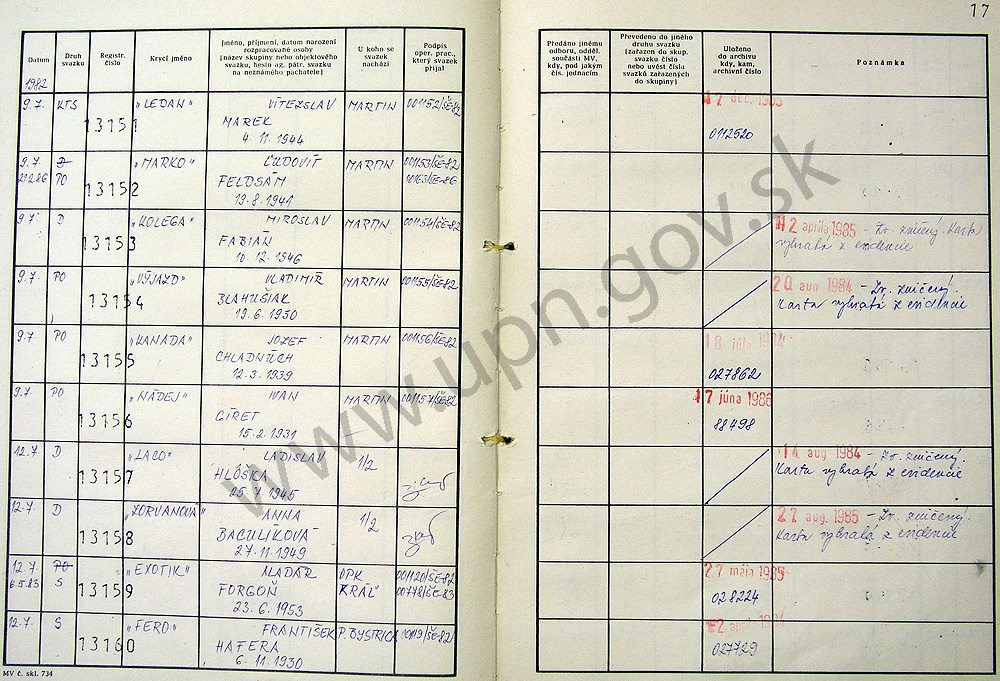 17
Datum
Druh svazku
Registr. číslo
Krycí jméno
Jméno, příjmení, datum narození
rozpracované osoby
(název skupiny nebo objektového
svazku, heslo ag. pátr. svazku
na neznámého pachatele)
U koho se
svazek
nachází
Podpis
oper. prac.,
který svazek
přijal
Předáno jinému
odboru, odděl.
součásti MV,
kdy, pod jakým
čís. jednacím
Převedeno do jiného
druhu svazku
(zařazen do skup.
svazku číslo
nebo uvést čísla
svazků zařazených
do skupiny)
Uloženo
do archivu
kdy, kam,
archivní číslo
Poznámka
1982
9.7. KTS 13151 „LEDAN" VÍTEZSLAV MARTIN 001152/ŠE-82
MAREK
4. 11. 1944
dec. 1985
0112520
9.7. MARTIN 001153/ŠE-82
PO 13152 „MARKO" ĽUDOVÍT
FELDSÁM 00163/ŠE-86
19. 8. 1941
9.7. D 13153 „KOLEGA" MIROSLAV MARTIN 001154/ŠE-82
FABIÁN
10. 12. 1946
2 apríla 1985 - Zv. zničený. Karta
vybratá z evidencie
9.7. PO 13154 „VÝJAZD" VLADIMÍR MARTIN 001155/ŠE-82
BLAHUŠIAK
19. 6. 1950
20 aug 1984 - Zv. zničený.
Karta vybratá z evidencie
9.7 PO 13155 „KANADA" JOZEF MARTIN 001156/ŠE-82
CHLADNÚCH
12. 3. 1939
027862
9.7. PO 13156 „NÁDEJ" IVAN MARTIN 001157/ŠE-82
GÍRET
15. 2. 1931
17 júna 1986
88498
12.7. D 13157 „LACO" LADISLAV 1/2
HLÔŠKA
25. 7. 1945
14. aug 1984 - Zv. zničený.
Karta vybratá z evidencie
12.7. D 13158 „ZORVANOVÁ" ANNA 1/2
BACULÍKOVÁ
27. 11. 1949
27 aug. 1985 - Zv. zničený.
Karta vybratá z evidencie
12.7. PO 13159 „EXOTIK" ALADÁR OPK 001120/ŠE-82
6.5.83 S FORGOŇ KRÁĽ 00748/ŠE-83
23. 6. 1953
27 mája 1985
028224
12.7. S 13160 „FERO" FRANTIŠEK P. BYSTRICA
HAFERA
6. 11. 1930
027729
MV č. skl. 734
www.upn.gov.sk